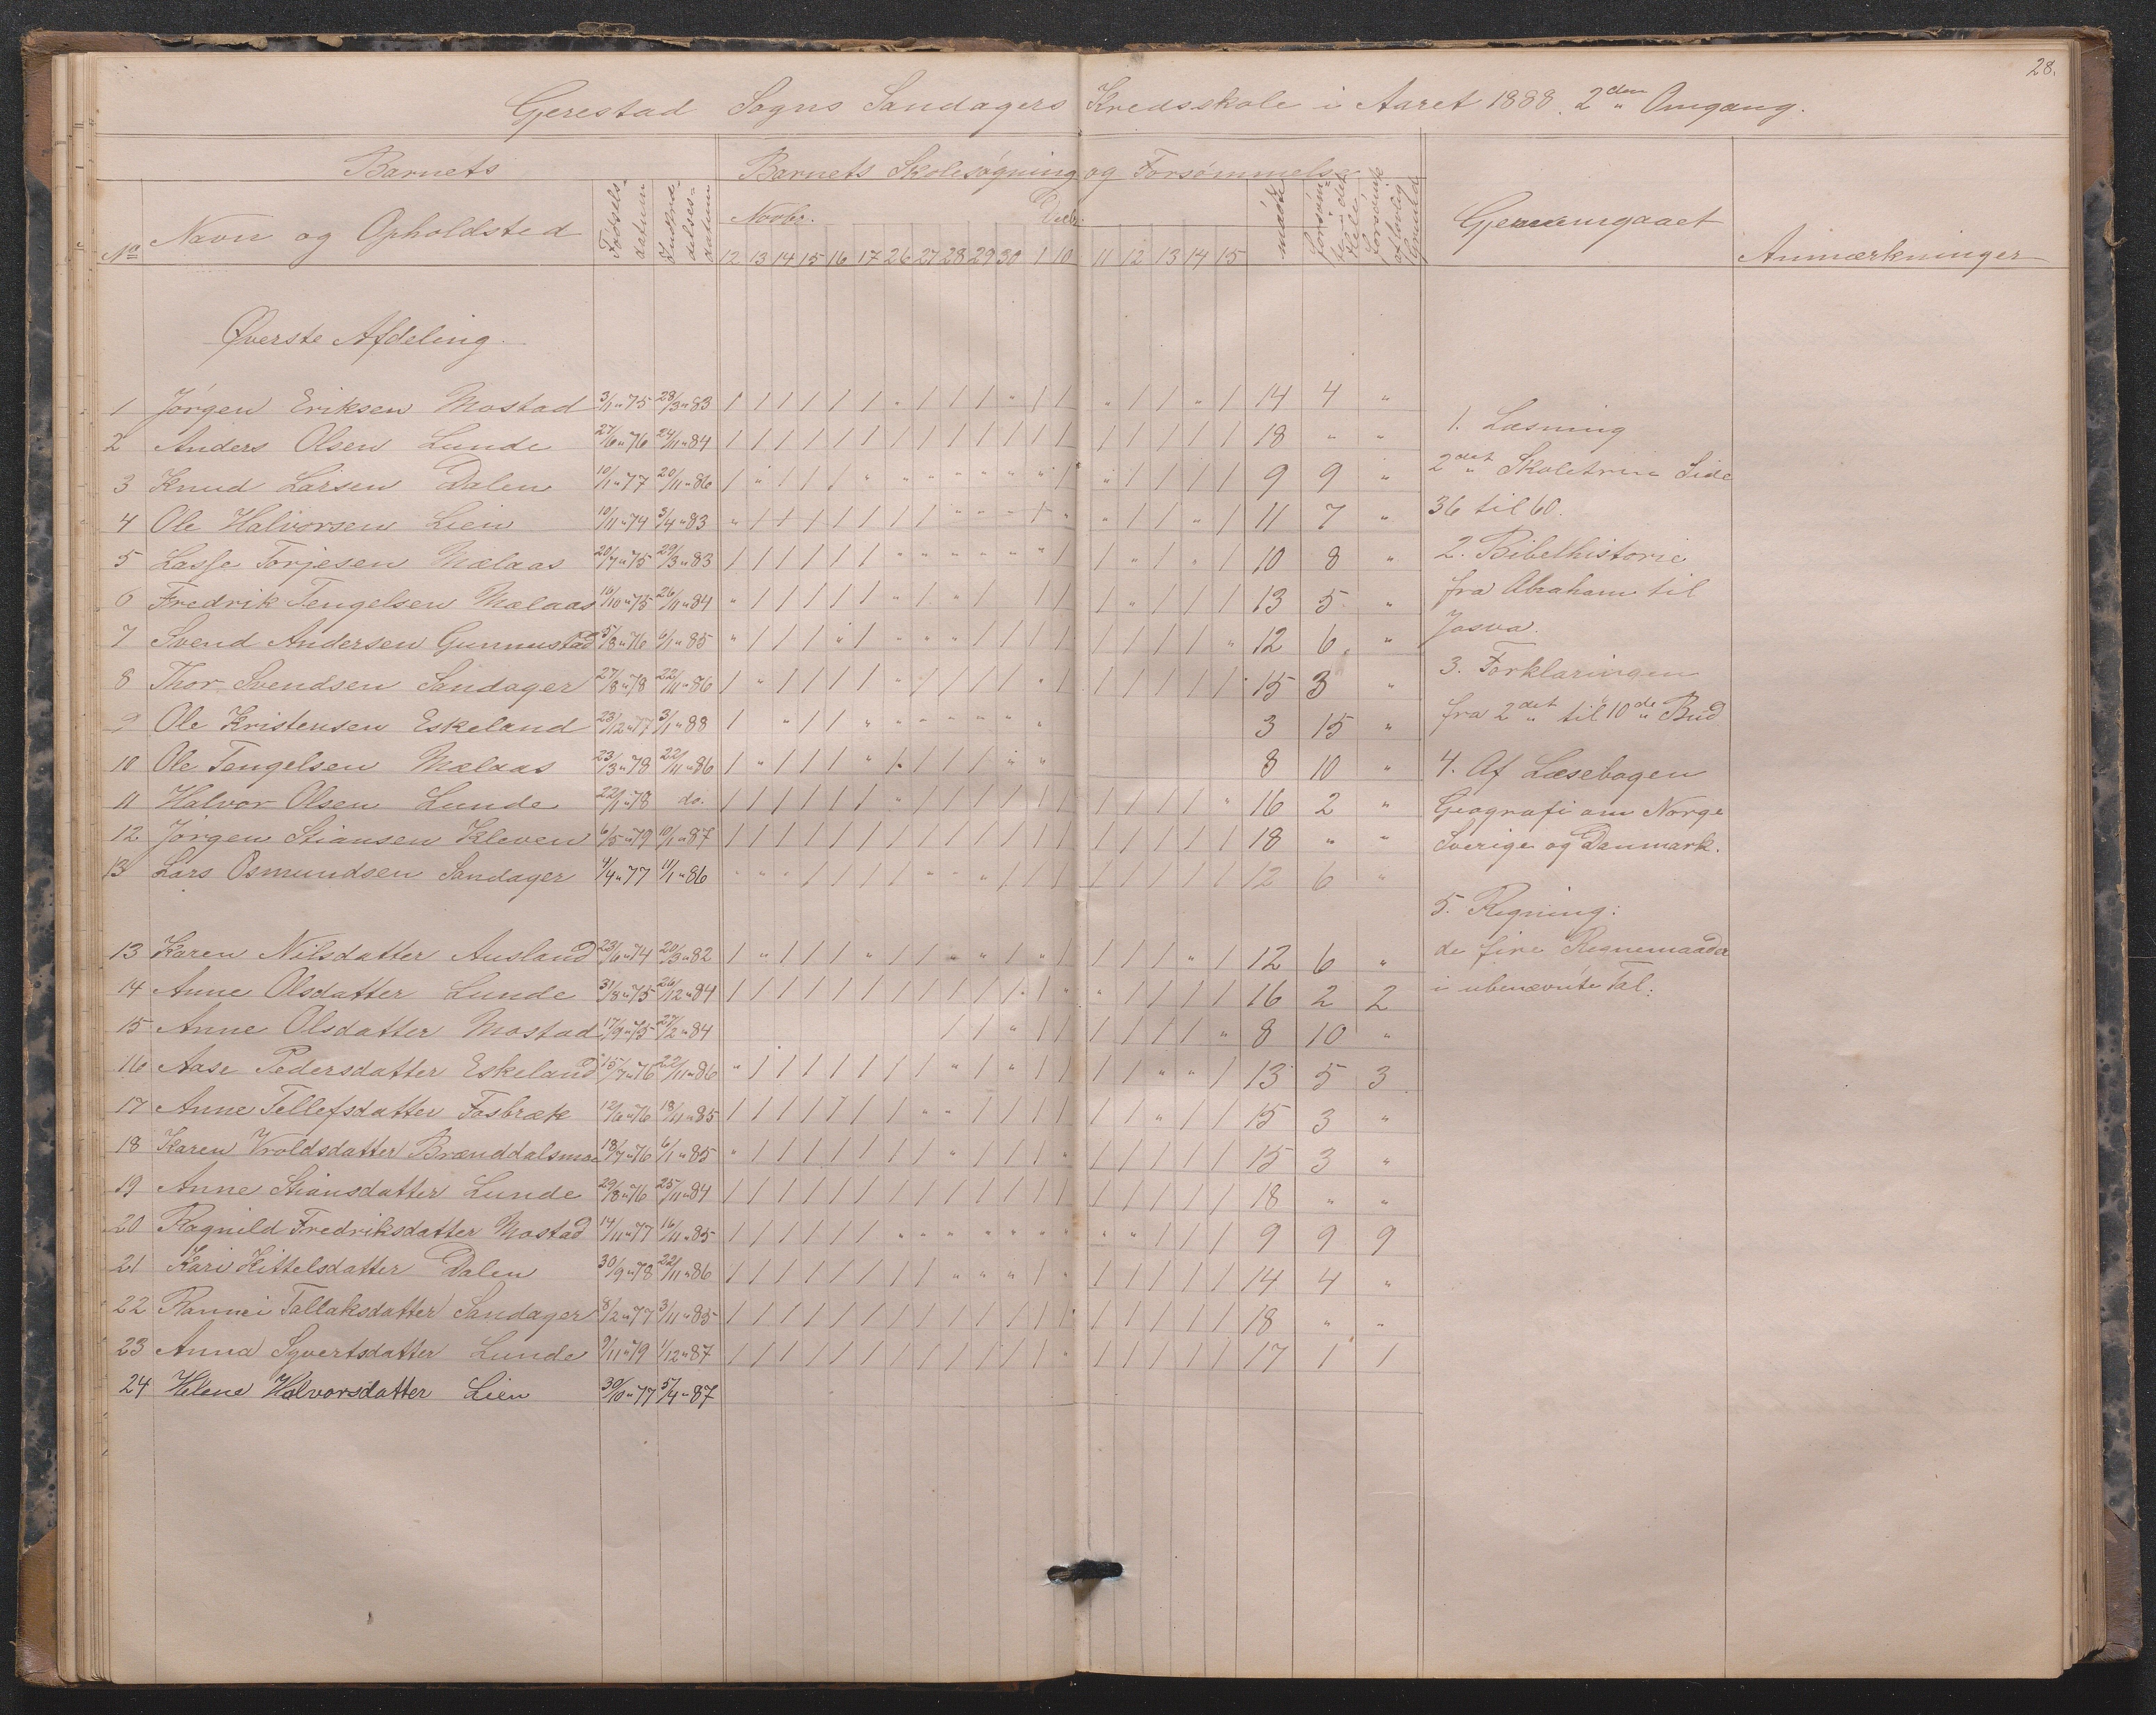 28.
Gjerestad Sogns Sandagers Kredsskole i Aaret 1888. 2den Omgang.
Barnets Barnets Skolesøgning og Forsømmelse
No Navn og Opholdsted Fødsels-datum Novbr. Decbr. mødt Gjennemgaaet Anmærkninger
12 13 14 15 16 17 26 27 28 29 30 1 10 11 12 13 14 15
Øverste Afdeling.
1 Jørgen Eriksen Mostad 3/1 " 75 28/3 " 83 / / / / / / " / / / " / / " / / " / 14 4 "
2 Anders Olsen Lunde 27/6 " 76 24/11 " 84 / / / / / / / / / / / / / / / / / / 18 " "
3 Knud Larsen Dalen 10/1 " 77 20/11 " 86 / " / / / " " " " " " " / " / / / / 9 9 "
4 Ole Halvorsen Lien 10/11 " 74 3/4 " 83 " / / / / / / / " " " / " " / / " / 11 7 "
5 Lasse Torjesen Mælaas 20/7 " 75 29/3 " 83 / / / / / / " " " " " " / / " / " / 10 8 "
6 Fredrik Tengelsen Mælaas 16/10 " 75 26/11 " 84 " / / / / / " / " / / / / " / / / 13 5 "
7 Svend Andersen Gunnustad 5/8 " 76 6/1 " 85 " / / / " / " " " / / / / / / / / " 12 6 "
8 Thor Svendsen Sandager 27/8 " 78 22/11 " 86 / " / / / / " / / / / " / / / / / / 15 3 "
9 Ole Kristensen Eskeland 23/12 " 77 3/1 " 88 / " / / " " " " " " " 3 15 "
10 Ole Tengelsen Mælaas 23/3 " 78 22/11 " 86 / " / / / " / / / / " " 8 10 "
11 Halvor Olsen Lunde 22/1 " 78 do. / / / / / / " / / / / / / / / / / " 16 2 "
12 Jørgen Stiansen Kleven 6/5 " 79 10/1 " 87 / / / / / / / / / / / / / / / / / / 18 " "
13 Lars Osmundsen Sandager 4/4 " 77 11/1 " 86 " " " / / / / " " " / / / / / / / / 12 6 "
13 Karen Nilsdatter Ausland 23/6 " 74 20/3 " 82 / " / / / " / / " " / " / / / / " / 12 6 "
14 Anne Olsdatter Lunde 31/8 " 75 26/12 " 84 / / / / / / / / / / / / " " / / / / 16 2 2
15 Anne Olsdatter Mostad 17/9 " 75 27/2 " 84 / / " / / / / / / " 8 10 "
16 Aase Pedersdatter Eskeland 15/7 " 76 22/11 " 86 " / / / / / / / " / " / / / / " " / 13 5 3
17 Anne Tellefsdatter Fosbræk 12/6 " 76 18/11 " 85 / / / / / / / " " / / / / / / " / / 15 3 "
18 Karen Vroldsdatter Brænddalsmoe 18/7 " 76 6/1 " 85 " / / / / / / / " / / / " / / / / / 15 3 "
19 Anne Stiansdatter Lunde 29/8 " 76 25/11 " 84 / / / / / / / / / / / / / / / / / / 18 " "
20 Ragnild Fredriksdatter Mostad 14/11 " 77 16/11 " 85 / / / / / / " " " " " " " " " / / / 9 9 9
21 Kari Kittelsdatter Dalen 30/9 " 78 22/11 " 86 / / / / / / / / " " " / " / / / / / 14 4 "
22 Rannei Tallaksdatter Sandager 8/2 " 77 3/11 " 85 / / / / / / / / / / / / / / / / / / 18 " "
23 Anna Syvertsdatter Lunde 9/11 " 79 1/12 " 87 / / / / / / / / / / / / " / / / / / 17 1 1
24 Helene Halvorsdatter Lien 30/10 " 77 5/4 " 87
1. Læsning
2det Skoletrin Side
36 til 60.
2. Bibelhistorie
fra Abraham til
Josva.
3. Forklaringen
fra 2det til 10de Bud
4. Af Læsebogen
Geografi om Norge
Sverige og Danmark.
5. Regning:
de fire Regnemaader
i ubenævnte Tal.